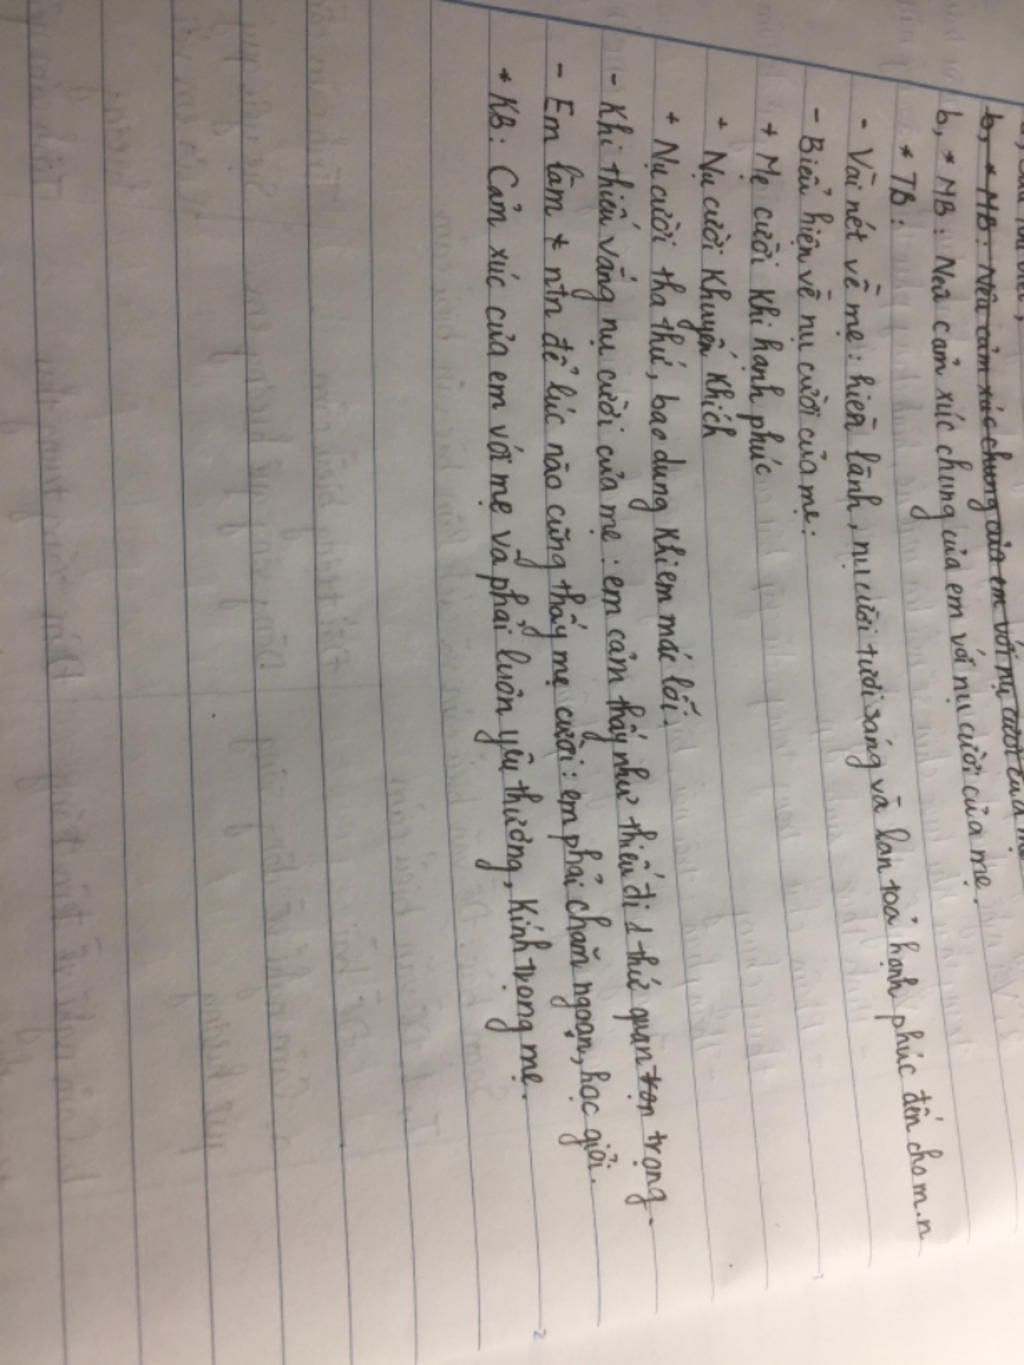 b, * MB: Nêu cảm xúc chung của em với nụ cười của mẹ
b, * MB: Nêu cảm xúc chung của em với nụ cười của mẹ.
* TB:
- Vài nét về mẹ: hiền lành, nụ cười tươi sáng và lan toả hạnh phúc đến cho m.n
- Biểu hiện về nụ cười của mẹ:
+ Mẹ cười khi hạnh phúc
+ Nụ cười khuyến khích
+ Nụ cười tha thứ, bao dung khi em mắc lỗi.
- Khi thiếu vắng nụ cười của mẹ: em cảm thấy như thiếu đi 1 thứ quan trọn trọng.
- Em làm t ntn để lúc nào cũng thấy mẹ cười: em phải chăm ngoan, học giỏi.
* KB: Cảm xúc của em với mẹ và phải luôn yêu thương, kính trọng mẹ.